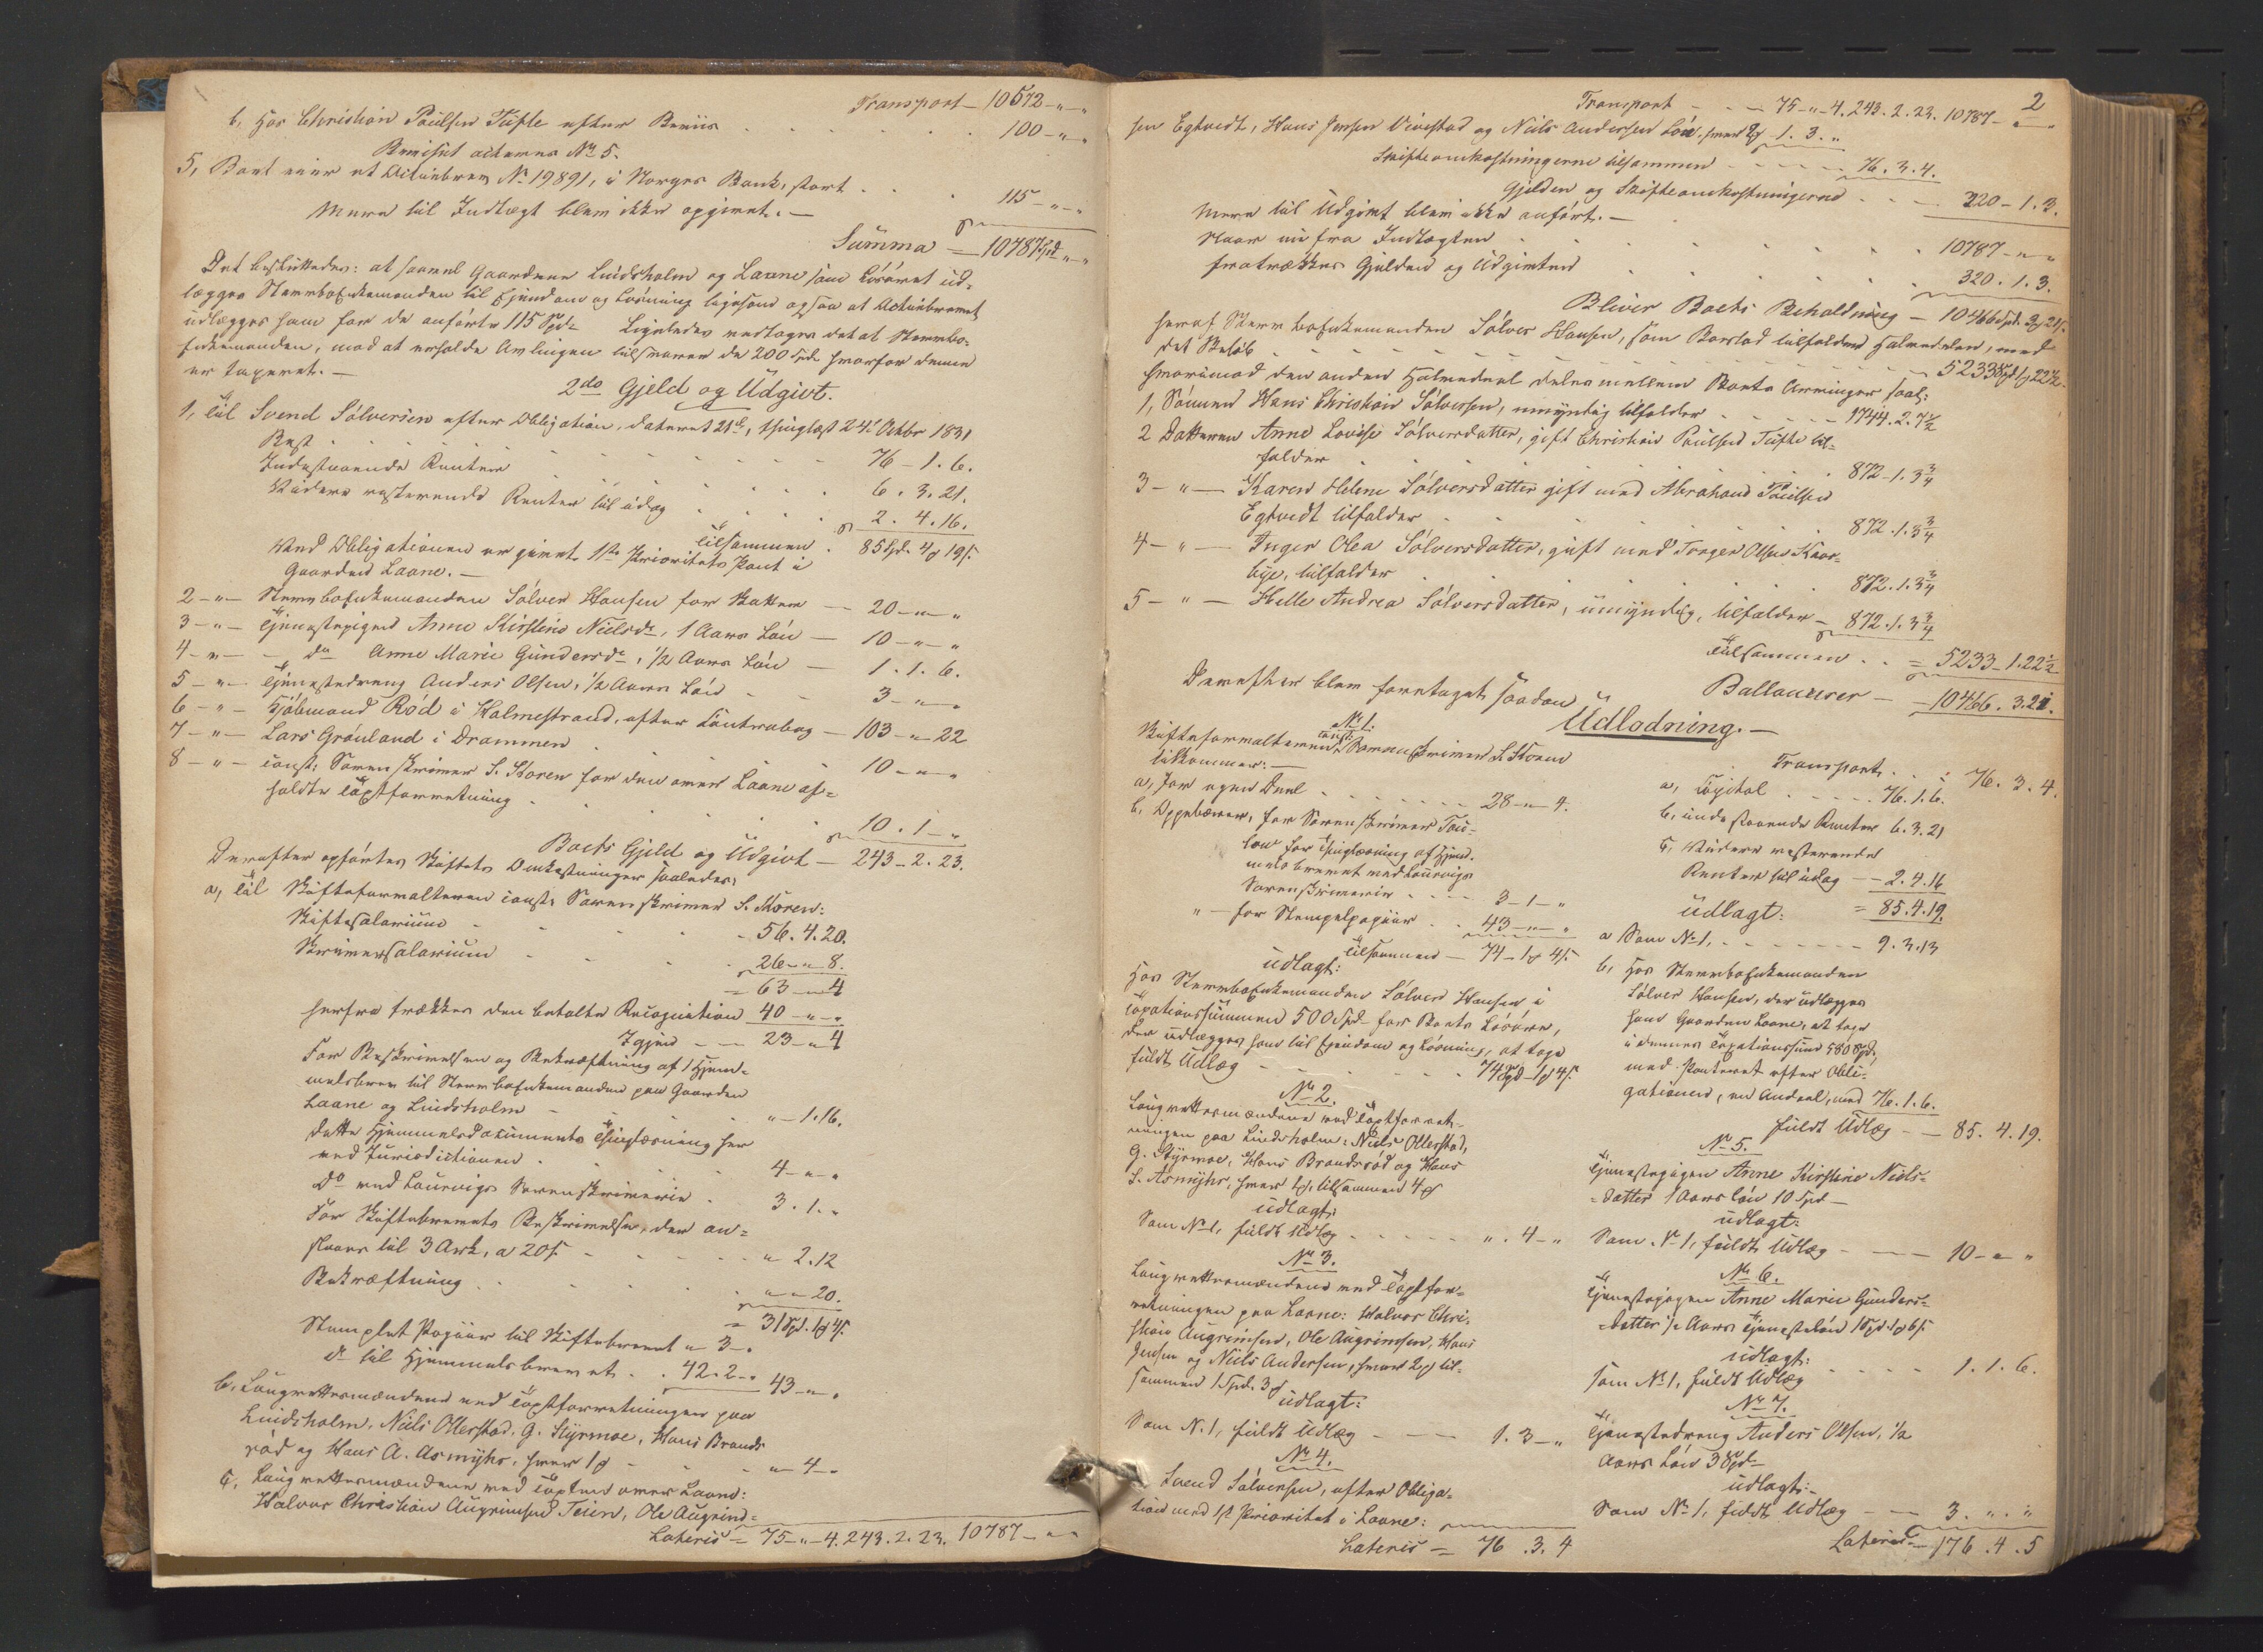 Transport – 10572 - " - "
b, Hos Christian Paulsen Tufte efter Beviis . . . 100 - " - "
Beviset acteres No 5.
5, Boet eier et Actiebrev No 19891, i Norges Bank, stort . . . 115 - " - "
Mere til Indtægt blev ikke opgivet. –
Summa = 10787 Spd " - "
Det besluttedes: at saavel Gaardene Lindsholm og Laane som Løsøret ud-
lægges Stervbofuldmanden til Eiendom og Løsning ligesom ogsaa at Actiebrevet
udlægges ham for de anførte 115 Spd. Ligeledes vedtoges det at Stervbo-
enkemanden, mod at erholde Avlingen tilsvarer de 200 Spd. hvorfor denne
er taxeret. –
2do Gjeld og Udgivt.
1, til Svend Sølversen efter Obligation, dateret 21de, thinglæst 24de Octbr 1831
Rest . . . 76 - 1. 6.
Indestaaende Renter . . . 6. 3. 21.
Videre resterende Renter til idag . . . 2. 4. 16.
tilsammen . 85 Spd. 4 19 s.
Ved Obligationen er givet 1ste Prioritets Pant i
Gaarden Laane. –
2 - " - Stervboenkemanden Sølver Hansen for Skatter – 20 - " - "
3 - " - Tjenestepigen Anne Kirstine Nielsdr, 1 Aars Løn – 10 - " - "
4 - " - do Anne Marie Gundersdr, 1/2 Aars Løn – 1. 1. 6.
5 - " - Tjenestedreng Anders Olsen, 1/2 Aars Løn - - 3 - " - "
6 - " - Kjøbmand Rød i Holmestrand, efter Contrabog – 103 - " - 22
7 - " - Lars Grønland i Drammen . . . 10 - " - "
8 - " - const: Sorenskriver S. Storen for den over Laane af-
holdte Taxtforretning . . . 10. 1 - "
Boets Gjeld og Udgivt – 243 - 2. 23.
Derefter opførtes Skiftets Omkostninger saaledes:
a, til Skifteforvalteren const: Sorenskriver S. Storen:
Skiftesalarium - - - 56. 4. 20.
Skriversalarium - - - 26 - " 8.
= 63 - " 4
herfra trækkes den betalte Recognition 40 - " - "
Igjen - - 23 - " 4
For Beskrivelsen og Bekræftning af 1 Hjem-
melsbrev til Stervboenkemanden paa Gaarden
Laane og Lindsholm - - - " - 1. 16.
dette Hjemmelsdocuments Thinglæsning her
ved Jurisdictionen . . . 4 - " - "
Do ved Laurvigs Sorenskriverie . 3. 1. "
For Skiftebrevets Beskrivelse, der an-
slaaes til 3 Ark, a 20 s. - - - " 2. 12
Bekræftning . . . " - " 20.
= 31 Spd. 1 4 s.
Stemplet Papiir til Skiftebrevet " 3 - "
do til Hjemmelsbrevet . . 42. 2 - " 43 - " - "
b, Laugrettesmændene ved Taxtforretningen paa
Lindsholm, Niels Ollerstad, G. Styrmoe, Hans Brands
rød og Hans A. Asmyhr, hver 1 - - - " - 4 - "
c, Laugrettesmændene ved Taxten over Laane:
Halvor Christian Augrimsen Teien, Ole Augrim-
Lateris = 75 - " - 4. 243. 2. 23. 10787 - " - "
2
Transport - - - 75 - " - 4. 243. 2. 23. 10787 - " - "
sen Egtvedt, Hans Jensen Vivestad og Niels Andersen Løn, hver 2 - 1. 3. "
Skifteomkostningerne tilsammen - - - 76. 3. 4.
Gjelden og Skifteomkostningerne - - - 320 - 1. 3.
Mere til Udgivt blev ikke anført. –
Naar nu fra Indtægten . . . 10787 - " - "
fratrækkes Gjelden og Udgivten . . . 320. 1. 3.
Bliver Boets Beholdning – 10466 Spd. 3 21 s.
heraf Stervboenkemanden Sølver Hansen, som Boeslod tilfalder Halvedelen, med
det Beløb - - - 5233 Spd 1 22 1/2 s.
hvorimod den anden Halvedeel deles mellem Boets Arvinger saal:
1, Sønnen Hans Christian Sølversen, umyndig tilfalder - - - 1744. 2. 7 1/2
2 Datteren Anne Lovise Sølversdatter, gift Christian Paulsen Tufte til-
falder . . . 872 - 1. 3 3/4
3 - " – Karen Helene Sølversdatter gift med Abraham Paulsen
Egtvedt tilfalder . . . 872. 1. 3 3/4
4 - " – Inger Olea Sølversdatter, gift med Torger Olsen Skor-
bye, tilfalder . . . 872. 1. 3 3/4
5 - " – Helle Andrea Sølversdatter, umyndig, tilfalder – 872. 1. 3 3/4
tilsammen . . = 5233 - 1. 22 1/2
Ballancerer – 10466. 3. 21.
Derefter blev foretaget saadan
Udlodning. –
No 1.
Skifteforvalteren const: Sorenskriver S. Storen
tilkommer: –
a, for egen Deel - - - 28 - " 4.
b, Oppebærer, for Sorenskriver Tau-
low for Thinglæsning af Hjem-
melsbrevet ved Laurvigs
Sorenskriverie - - - - 3 - 1 - "
" – for Stempelpapiir - - 43 - " - "
tilsammen – 74 - 1 4 s.
udlagt:
Hos Stervboenkemanden Sølver Hansen i
Taxationssummen 500 Spd for Boets Løsøre,
der udlægges ham til Eiendom og Løsning, at tage
fuldt Udlæg - - - 74 Spd - 1 4 s.
No 2.
Laugrettesmændene ved Taxtforret-
ningen paa Lindsholm: Niels Ollerstad,
G. Styrmoe, Hans Brandsrød og Hans
S. Asmyhr, hver 1, tilsammen 4
udlagt:
Som No 1, fuldt Udlæg - - - - " . 4 - "
No 3.
Laugrettesmændene ved Taxtfor-
retningen paa Laane: Halvor Chri-
stian Augrimsen, Ole Augrimsen, Hans
Jensen og Niels Andersen, hver 2 til-
sammen 1 Spd. 3
udlagt:
Som No 1, fuldt Udlæg - - - 1. 3 - "
No 4.
Svend Sølversen, efter Obliga-
tion med 1ste Prioritet i Laane:
Lateris = 76. 3. 4
Transport . . . 76. 3. 4.
a, Capital - - - - 76. 1. 6.
b, indestaaende Renter 6. 3. 21
c, Videre resterende
Renter til idag - - 2. 4. 16
= 85. 4. 19.
udlagt:
a Som No 1, - - - - 9. 3. 13
b, Hos Stervboenkemanden
Sølver Hansen, der udlægges
ham Gaarden Laane, at tage
i dennes Taxationssum 580 Spd,
med Panteret efter Obli-
gationen, en Andeel, med 76. 1. 6.
fuldt Udlæg - - 85. 4. 19.
No 5.
Tjenestepigen Anne Kirstine Niels-
datter 1 Aars Løn 10 Spd –
udlagt:
Som No 1, fuldt Udlæg - - - 10 - " - "
No 6.
Tjenestepigen Anne Marie Gunders-
datter 1/2 Aars Tjenesteløn 1 Spd 1 6 s.
udlagt:
som No 1, fuldt Udlæg - - - 1. 1. 6.
No 7.
Tjenestedreng Anders Olsen, 1/2
Aars Løn 3 Spd –
udlagt:
Som No 1, fuldt Udlæg - - 3. " . "
Lateris – 176. 4. 5